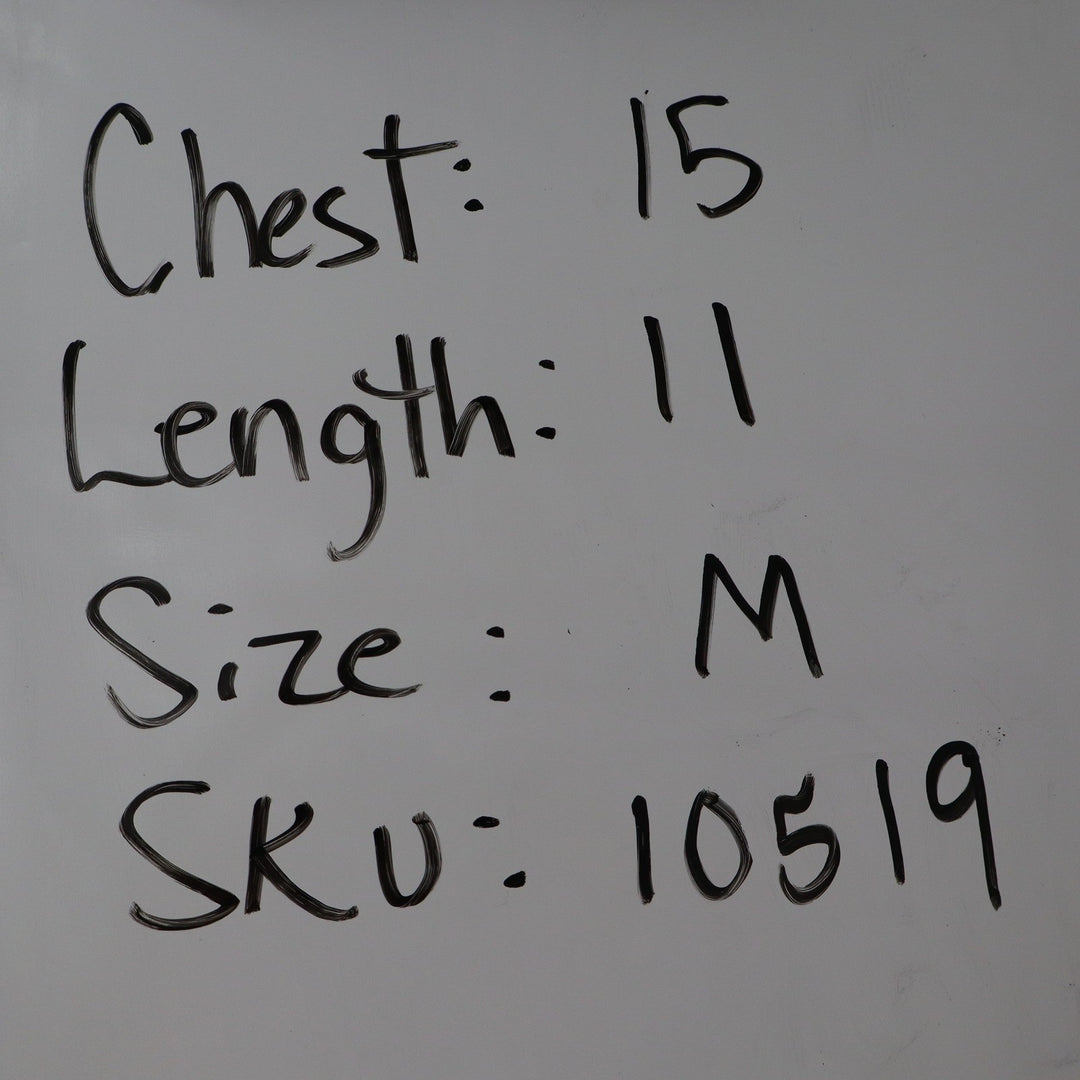 Chest: 15
Length: 11
Size: M
SKU: 10519